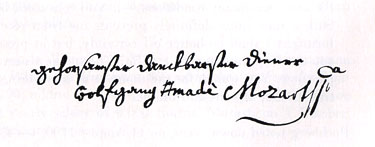 gehorsamster danckbarster diener
Wolfgang Amadè Mozart